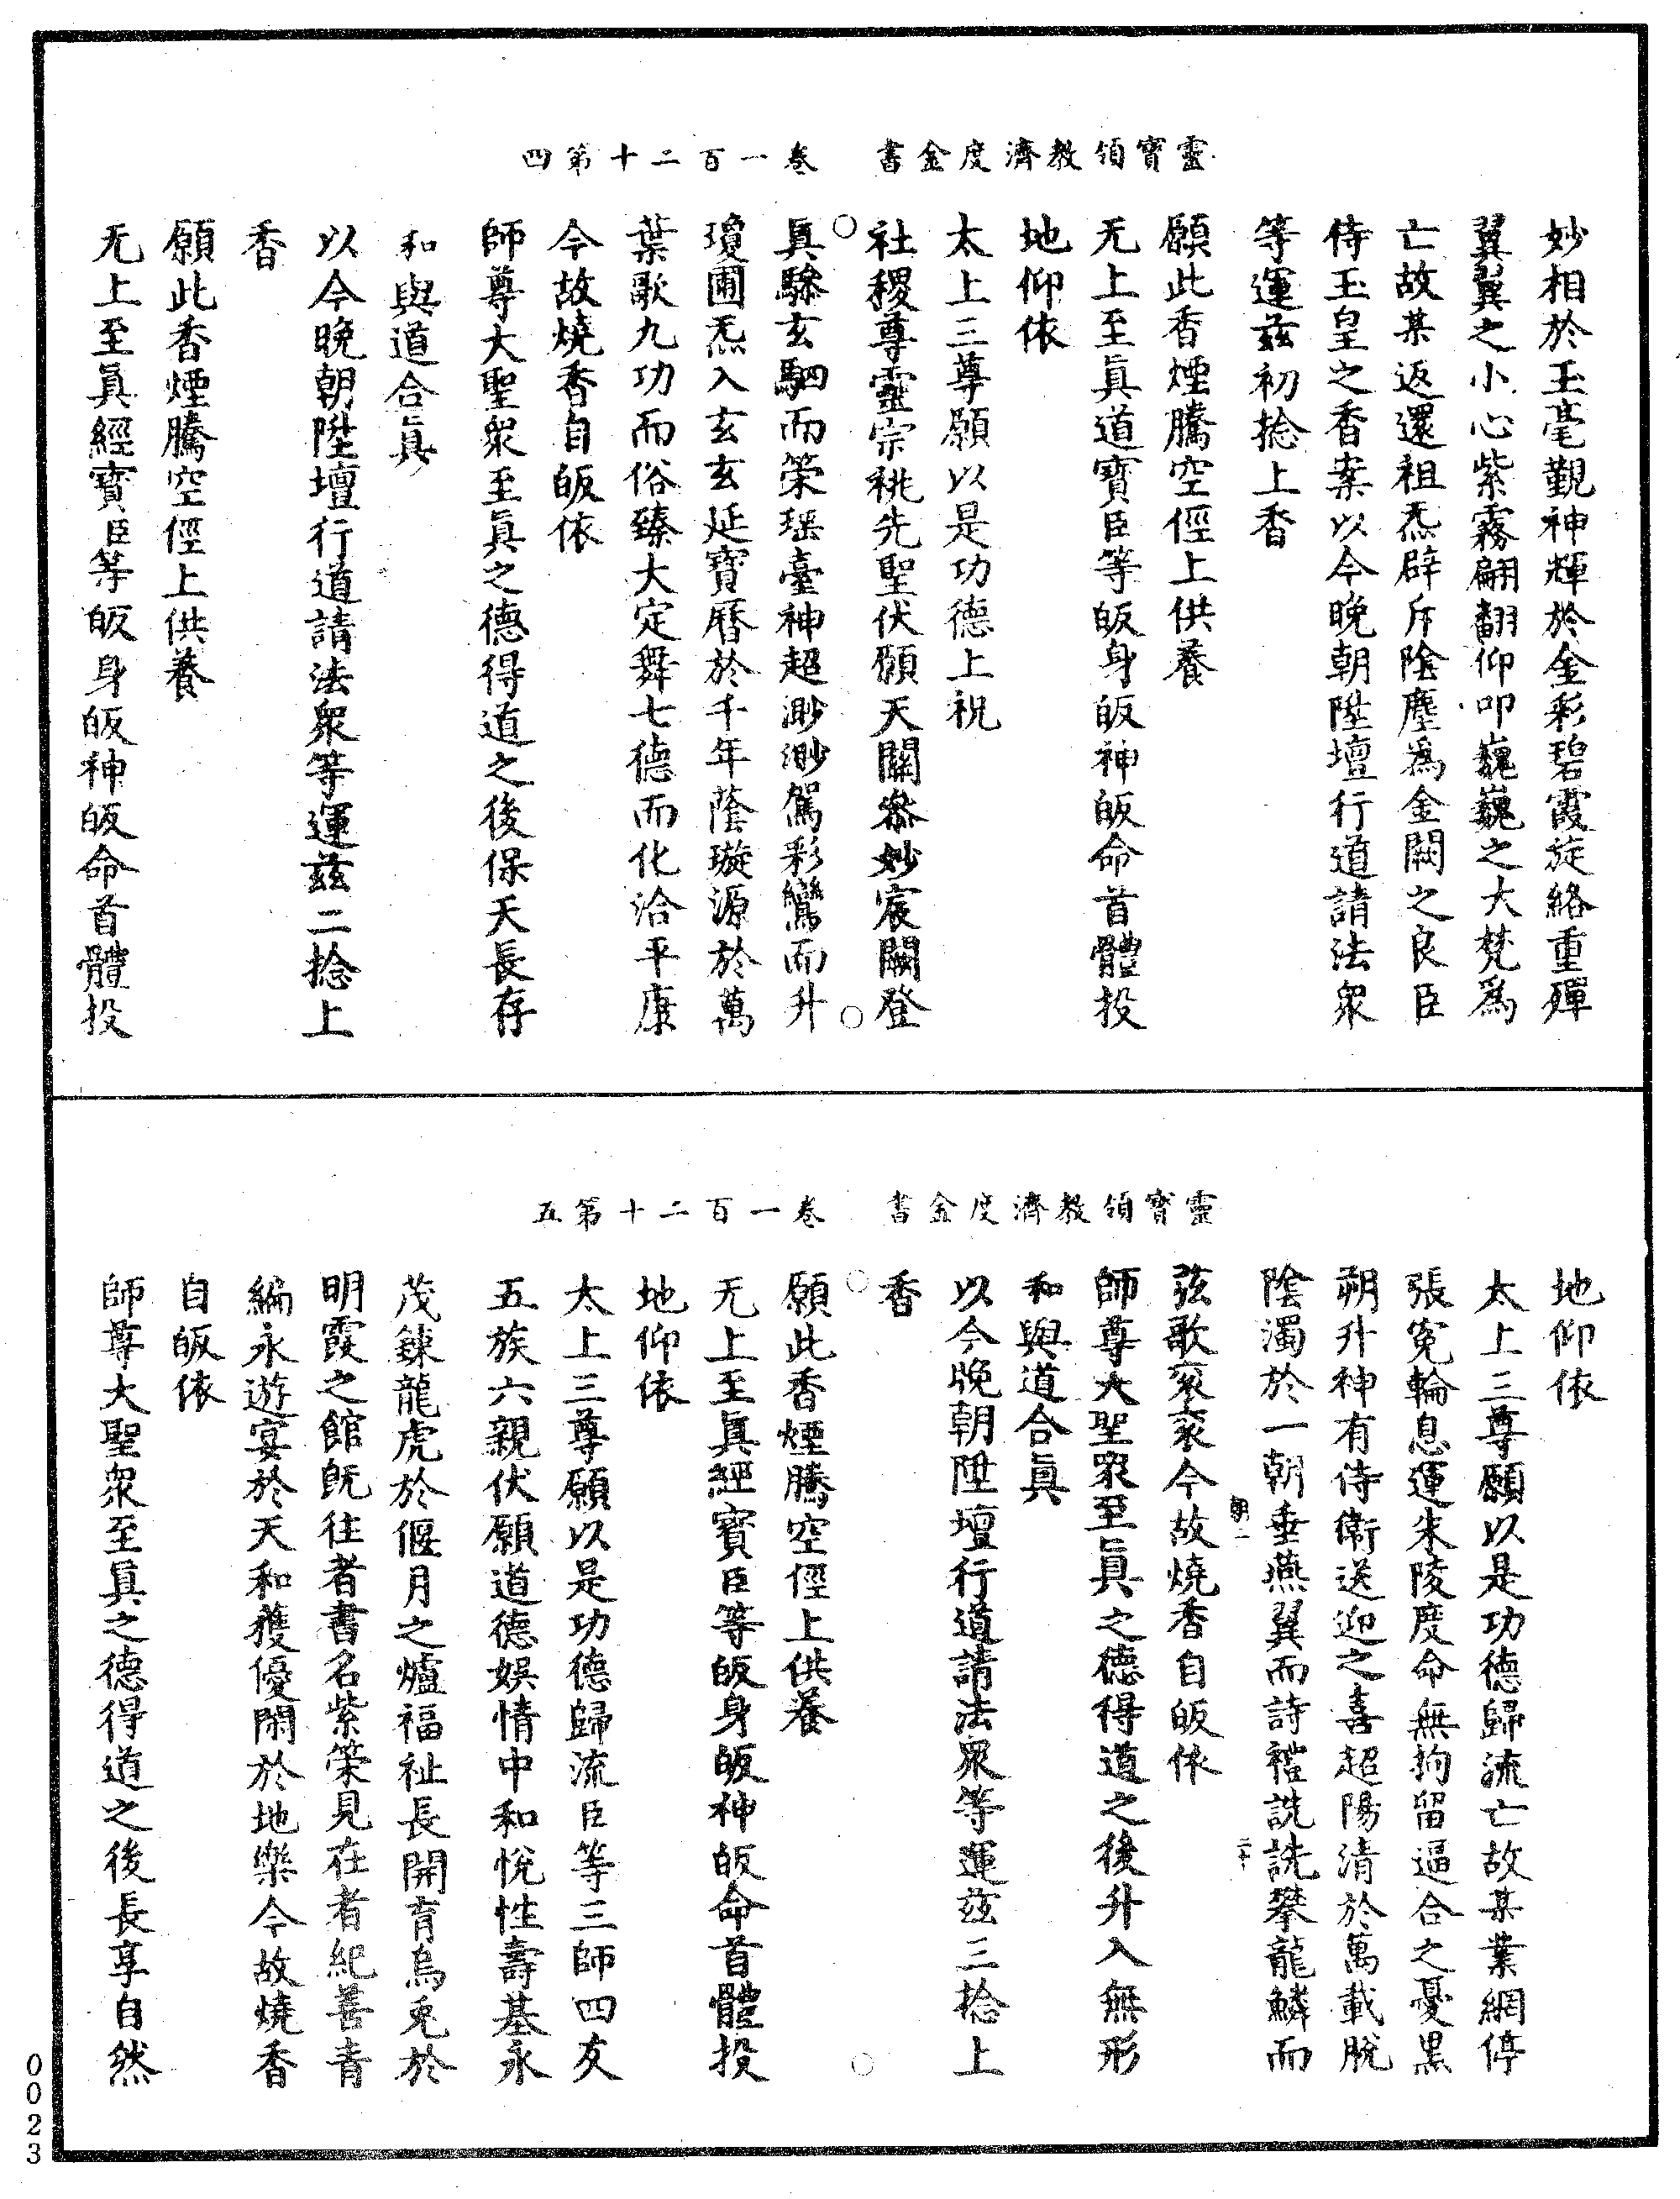 靈寶領教濟度金書　卷一百二十第四
妙相於玉毫覲神輝於金彩碧霞旋絡重殫
翼翼之小心紫霧翩翻仰叩巍巍之大梵爲
亡故某返還祖炁辟斥陰塵爲金闕之良臣
侍玉皇之香案以今晚朝陞壇行道請法眾
等運兹初捻上香
願此香煙騰空徑上供養
无上至眞道寶臣等皈身皈神皈命首體投
地仰依
太上三尊願以是功德上祝
社稷尊靈宗祧先聖伏願天關叅妙宸闕登
眞驂玄駟而榮瑶臺神超渺渺駕彩鸞而升
瓊圃炁入玄玄延寶曆於千年蔭璇源於萬
葉歌九功而俗臻大定舞七德而化洽平康
今故燒香自皈依
師尊大聖眾至眞之德得道之後保天長存
和與道合眞
以今晚朝陞壇行道請法眾等運兹二捻上
香
願此香煙騰空徑上供養
无上至眞經寶臣等皈身皈神皈命首體投
靈寶領教濟度金書　卷一百二十第五
地仰依
太上三尊願以是功德歸流亡故某業網停
張寃輪息運朱陵度命無拘留逼合之憂黒
朔升神有侍衛送迎之喜超陽清於萬載脫
陰濁於一朝垂燕翼而詩禮詵詵攀龍鱗而
朝二
二十
弦歌衮衮今故燒香自皈依
師尊大聖眾至眞之德得道之後升入無形
和與道合眞
以今晚朝陞壇行道請法眾等運兹三捻上
香
願此香煙騰空徑上供養
无上至眞經寶臣等皈身皈神皈命首體投
地仰依
太上三尊願以是功德歸流臣等三師四友
五族六親伏願道德娯情中和悅性壽基永
茂鍊龍虎於偃月之爐福祉長開育烏兎於
明霞之館旣往者書名紫榮見在者紀善青
編永遊宴於天和獲優閑於地樂今故燒香
自皈依
師尊大聖眾至眞之德得道之後長享自然
0023